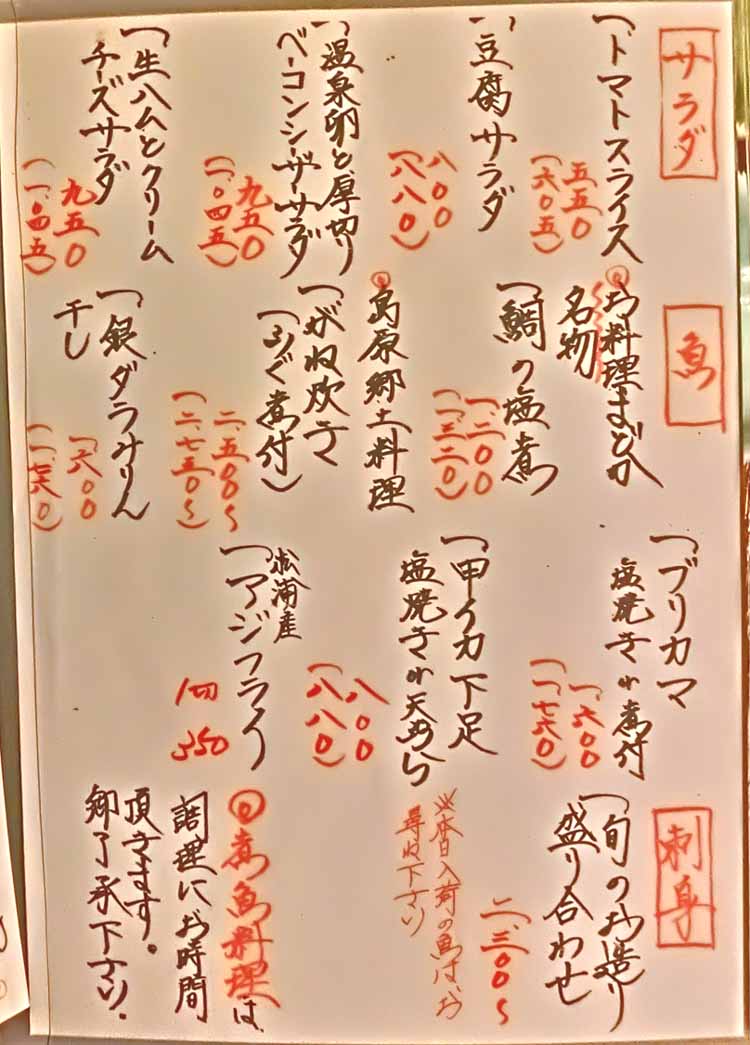 サラダ
一、トマトスライス
五五〇
(六〇五)
一、豆腐サラダ
八〇〇
(八八〇)
一、温泉卵と厚切り
ベーコンシーザーサラダ
九五〇
(一、〇四五)
一、生ハムとクリーム
チーズサラダ
九五〇
(一、〇四五)
魚
◎お料理まどか
名物
一、鯛の塩煮
一、二〇〇
(一、三二〇)
◎島原郷土料理
一、がね炊き
(ふぐ煮付)
二、五〇〇〜
(二、七五〇〜)
一、銀ダラみりん
干し
一、六〇〇
(一、七六〇)
一、ブリカマ
塩焼きor煮付
一、六〇〇
(一、七六〇)
一、甲イカ下足
塩焼きor天ぷら
八〇〇
(八八〇)
松浦産
一、アジフライ
1切
350
刺身
一、旬のお造り
盛り合わせ
二、三〇〇〜
※本日入荷の魚は、お
尋ね下さい
◎煮魚料理は、
調理にお時間
頂きます。
御了承下さい。